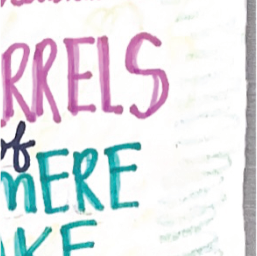 RRELS
of
MERE
AKE